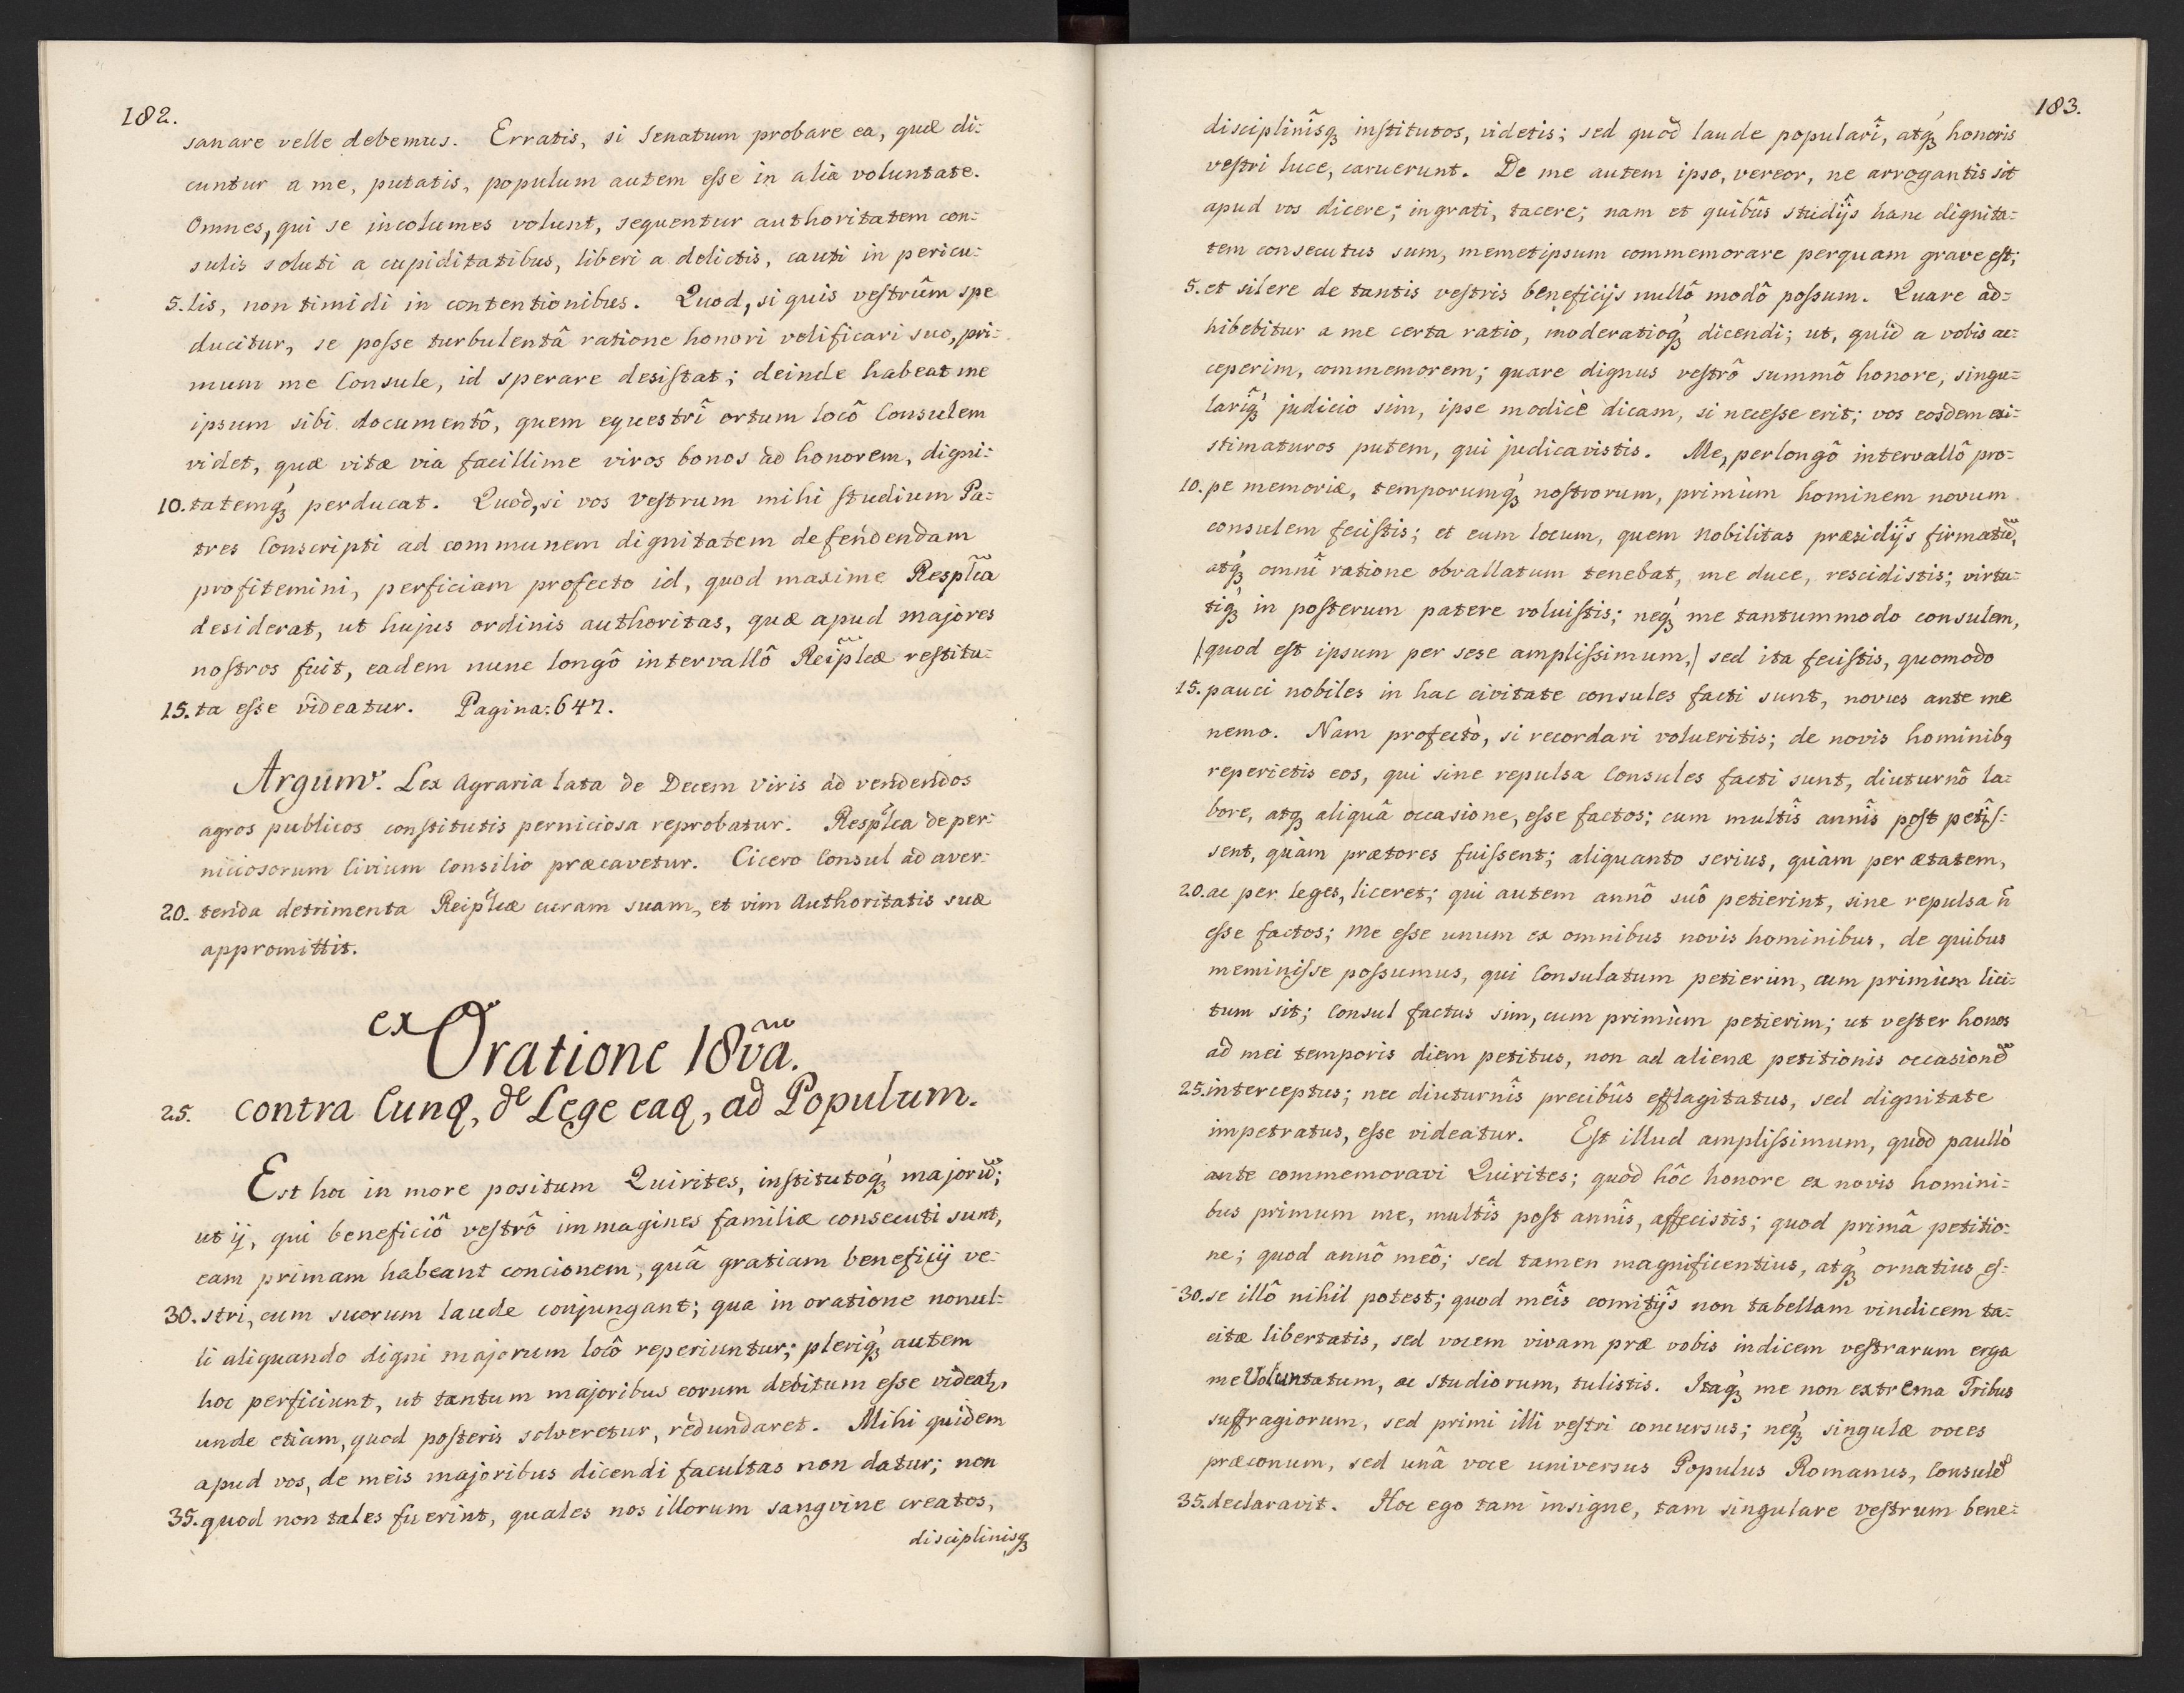 182.
sanare velle debemus. Erratis, si Senatum probare ea, quæ di:
cuntur a me, putatis, populum autem eſse in alia voluntate.
Omnes, qui se incolumes volunt, sequentur authoritatem con:
sulis soluti a cupiditatibus, liberi a delictis, cauti in pericu:
5. lis, non timidi in contentionibus. Quod, si quis veſtrûm spe
ducitur, se poſse turbulentâ ratione honori velificari suo, pri:
mum me Consule, id sperare desiſtat; deinde habeat me
ipsum sibi documentô, quem equestrî ortum locô Consulem
videt, quæ vitæ via facillime viros bonos ad honorem, digni:
10. tatemq́ꝫ perducat. Quòd, si vos veſtrum mihi ſtudium Pa:
tres Conscripti ad communem dignitatem defendendam
profitemini, perficiam profecto id, quod maxime Resplca
desiderat, ut hujus ordinis authoritas, quæ apud majores
noſtros fuit, eadem nunc longô intervallô Reiplcæ reſtitu:
15. ta eſse videatur. Pagina: 647.
Argumt. Lex Agraria lata de Decem viris ad vendendos
agros publicos conſtitutis perniciosa reprobatur. Resplca de per:
niciosorum Civium Consilio præcavetur. Cicero Consul ad aver:
20. tenda detrimenta Reiplcæ curam suam, et vim Authoritatis suæ
appromittit.
ex Oratione 18va.
25. contra Eunꝗ, de Lege eaꝗ, ad Populum.
Est hoc in more positum Quirites, inſtitutoq́ꝫ majorũ;
ut ij, qui beneficiô veſtrô immagines familiæ consecuti sunt,
eam primam habeant concionem, quâ gratiam beneficij ve:
30. stri, cum suorum laude conjungant; qua in oratione nonul:
li aliquando digni majorum locô reperiuntur; pleriq́ꝫ autem
hoc perficiunt, ut tantum majoribus eorum debitum eſse videatr,
unde etiam, quod poſteris solveretur, redundaret. Mihi quidem
apud vos, de meis majoribus dicendi facultas non datur; non
35. quod non tales fuerint, quales nos illorum sangvine creatos,
disciplinisqꝫ
183.
disciplinîsqꝫ inſtitutos, videtis; sed quòd laude popularî, atq́ꝫ honoris
veſtri luce, caruerunt. De me autem ipso, vereor, ne arrogantis sit
apud vos dicere; ingrati, tacere; nam et quibûs studijs hanc dignita:
tem consecutus sum, memetipsum commemorare perquam grave eſt;
5. et silere de tantis veſtris beneficijs nullô modô poſsum. Quare ad:
hibebitur a me certa ratio, moderatioq́ꝫ dicendi; ut, quid a vobis ac:
ceperim, commemorem; quare dignus veſtrô summô honore, singu:
larîq́ꝫ judicio sim, ipse modicè dicam, si necesse erit; vos eosdem exi:
stimaturos putem, qui judicavistis. Me, perlongô intervallô pro:
10. pe memoriæ, temporumq́ꝫ noſtrorum, primùm hominem novum
consulem feciſtis; et eum locum, quem nobilitas præsidijs firmatũ,
atq́ꝫ omnî ratione obvallatum tenebat, me duce, rescidistis; virtu:
tiq́ꝫ in poſterum patere voluiſtis; neq́ꝫ me tantummodo consulem,
/quod eſt ipsum per sese ampliſsimum,/ sed ita feciſtis, quomodo
15. pauci nobiles in hac civitate consules facti sunt, novus ante me
nemo. Nam profectò, si recordari volueritis; de novis hominibꝫ
reperietis eos, qui sine repulsa Consules facti sunt, diuturnô la:
bore, atqꝫ aliquâ occasione, eſse factos; cum multîs annîs poſt petiſ:
sent, quàm prætores fuiſsent; aliquanto serius, quàm per ætatem,
20. ac per leges, liceret; qui autem annô suô petierint, sine repulsa ñ
eſse factos; Me eſse unum ex omnibus novis hominibus, de quibus
meminiſse poſsumus, qui Consulatum petierim, cum primùm lici:
tum sit; Consul factus sim, cum primùm petierim; ut veſter honos
ad mei temporis diem petitus, non ad alienæ petitionis occasionẽ
25. interceptus; nec diuturnîs precibûs efflagitatus, sed dignitate
impetratus, eſse videatur. Eſt illud ampliſsimum, quòd paullò
ante commemoravi Quirites; quòd hôc honore ex novis homini:
bus primum me, multîs poſt annîs, affecistis; quod primâ petitio:
ne; quod annô meô; sed tamen magnificentius, atq́ꝫ ornatius eſ:
30. se illô nihil potest; quod meîs comitijs non tabellam vindicem ta:
citæ libertatis, sed vocem vivam præ vobis indicem veſtrarum erga
me Voluntatum, ac studiorum, tulistis. Itaq́ꝫ me non extrema Tribus
suffragiorum, sed primi illi veſtri concursus; neq́ꝫ singulæ voces
præconum, sed unâ voce universus Populus Romanus, Consulẽ
35. declaravit. Hoc ego tam insigne, tam singulare veſtrum bene: